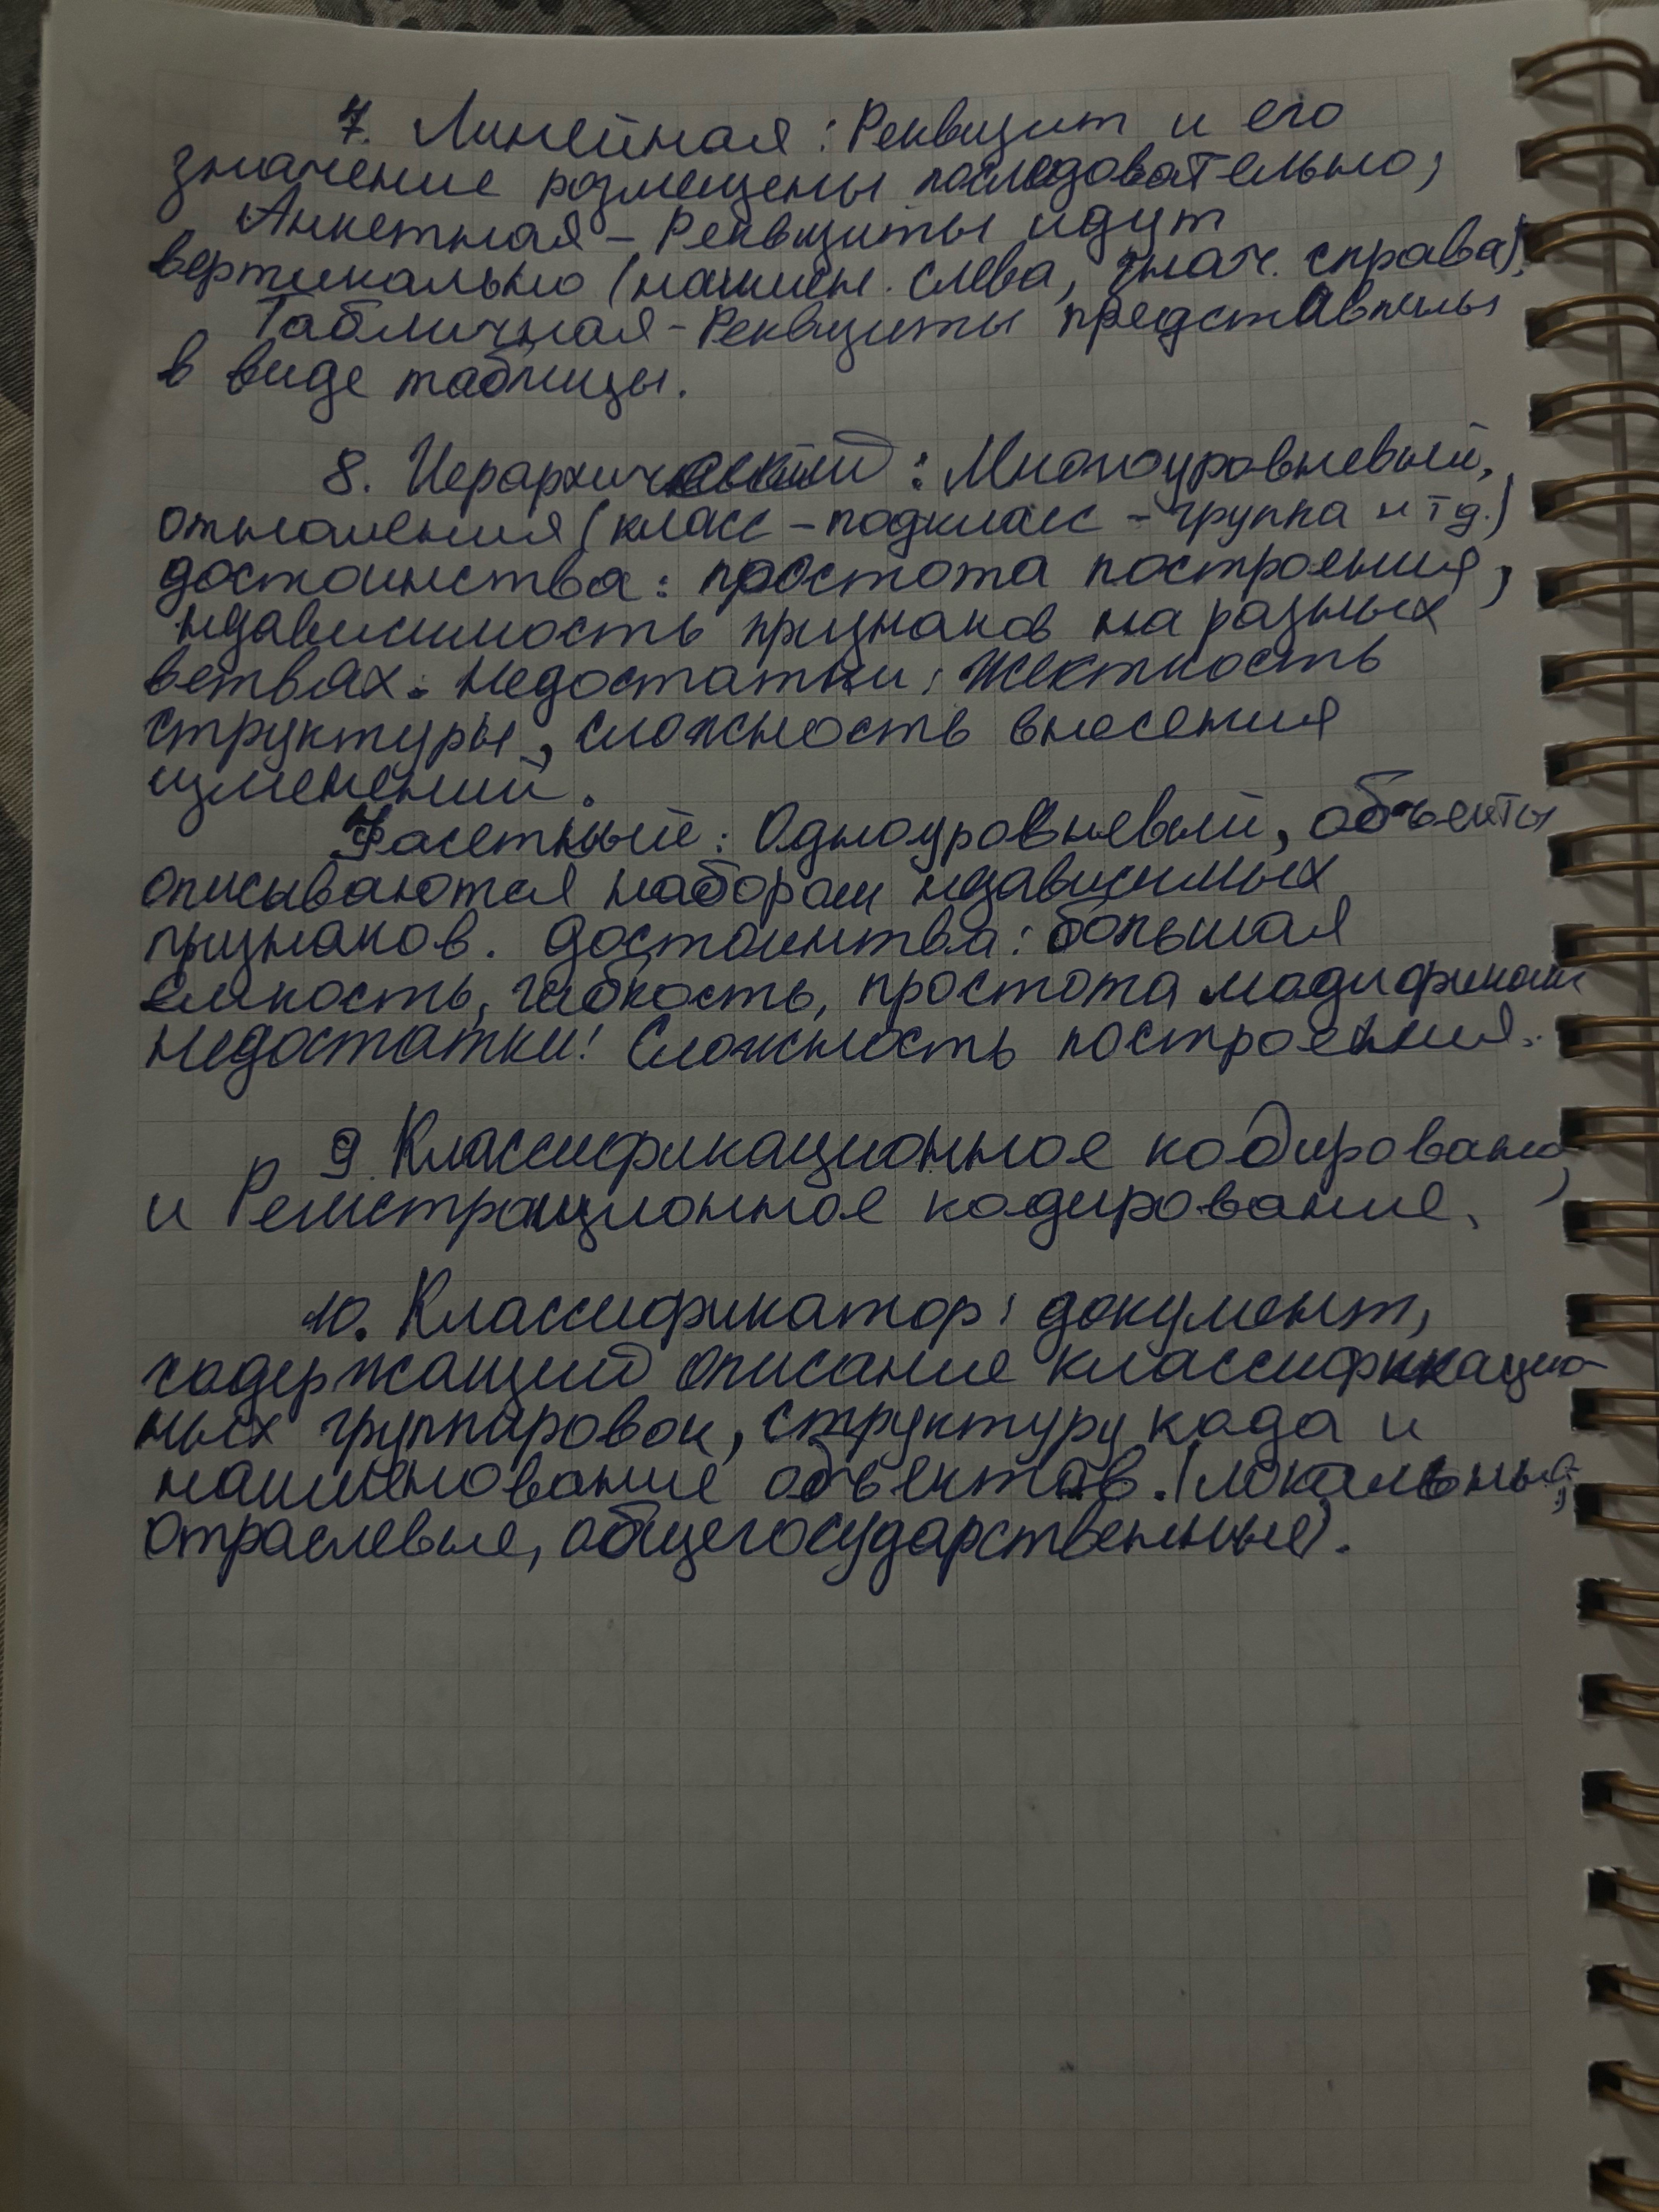 7. Линейная: Реквизит и его
значение размещены последовательно,
Анкетная - Реквизиты идут
вертикально (наимен. слева, знач. справа),
Табличная - Реквизиты представлены
в виде таблицы.
8. Иерархический: Многоуровневый,
отношения (класс - подкласс - группа и тд.)
достоинства: простота построения,
независимость признаков на разных
ветвях. Недостатки: Жесткость
структуры, сложность внесения
изменений.
Фасетный: Одноуровневый, объекты
описываются набором независимых
признаков. Достоинства: большая
емкость, гибкость, простота модификации
Недостатки: Сложность построения.
9. Классификационное кодирование,
и Регистрационное кодирование.
10. Классификатор: документ,
содержащий описание классификацио-
ных группировок, структуру кода и
наименование объектов. (локальные,
отраслевые, общегосударственные).